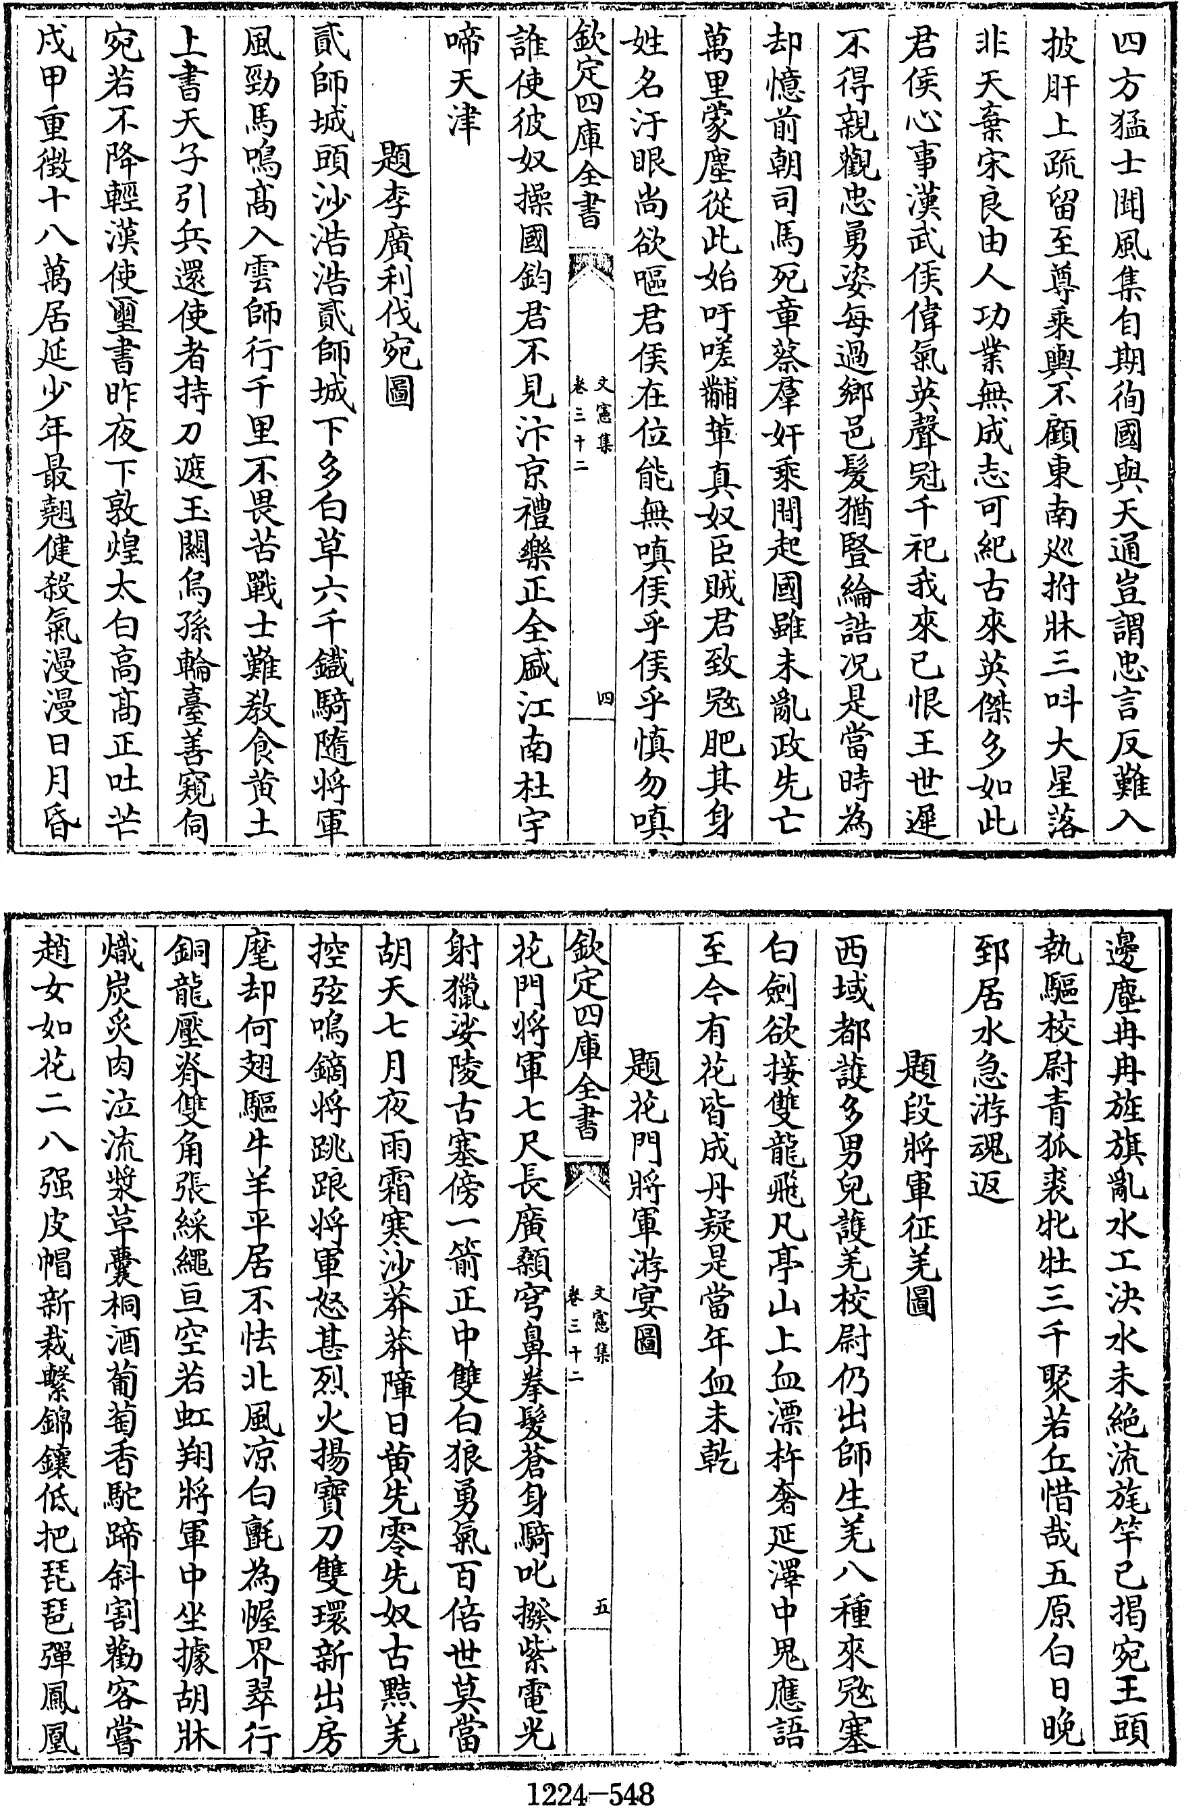 四方猛士聞風集自期徇國與天通豈謂忠言反難入
披肝上疏留至尊乘輿不顧東南廵拊牀三呌大星落
非天棄宋良由人功業無成志可紀古來英傑多如此
君侯心事漢武侯偉氣英聲冠千祀我來已恨王世遲
不得親觀忠勇姿每過鄉邑髮猶豎綸誥况是當時為
却憶前朝司馬死章蔡羣奸乘間起國雖未亂政先亡
萬里蒙塵從此始吁嗟黼 真奴臣賊君致冦肥其身
姓名汙眼尚欲嘔君侯在位能無嗔侯乎侯乎慎勿嗔
欽定四庫全書
文憲集
卷三十二
四
誰使彼奴操國鈞君不見汴京禮樂正全盛江南杜宇
啼天津
題李廣利伐宛圖
貳師城頭沙浩浩貳師城下多白草六千鐵騎隨將軍
風勁馬鳴髙入雲師行千里不畏苦戰士難教食黄土
上書天子引兵還使者持刀遮玉關烏孫輪臺善窺伺
宛若不降輕漢使璽書昨夜下敦煌太白高髙正吐芒
戍甲重徴十八萬居延少年最翹健殺氣漫漫日月昏
邊塵冉冉旌旗亂水工决水未絶流旄竿已揭宛王頭
執驅校尉青狐裘牝牡三千聚若丘惜哉五原白日晚
郅居水急游魂返
題段將軍征羌圖
西域都護多男兒護羌校尉仍出師生羌八種來冦塞
白劍欲接雙龍飛凡亭山上血漂杵奢延澤中鬼應語
至今有花皆成丹疑是當年血未乾
題花門將軍游宴圖
欽定四庫全書
文憲集
卷三十二
五
花門將軍七尺長廣顙穹鼻拳髮蒼身騎叱撥紫電光
射獵娑陵古塞傍一箭正中雙白狼勇氣百倍世莫當
胡天七月夜雨霜寒沙莽莽障日黄先零先奴古㸃羌
控弦鳴鏑將跳踉將軍怒甚烈火揚寶刀雙環新出房
麾却何翅驅牛羊平居不怯北風凉白氈為幄界翠行
銅龍壓脊雙角張綵繩亘空若虹翔將軍中坐據胡牀
熾炭炙肉泣流漿草囊桐酒葡萄香駝蹄斜割勸客嘗
趙女如花二八强皮帽新裁繫錦鑲低把琵琶彈鳳凰
1224-548